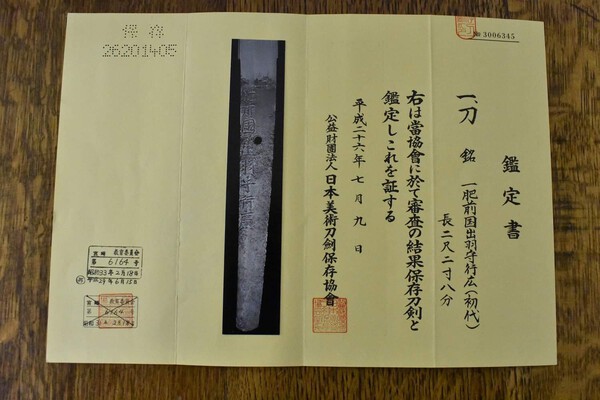 № 3006345
鑑定書
一、刀 銘 一肥前国出羽守行広(初代)
長二尺二寸八分
右は當協會に於て審査の結果保存刀剣と
鑑定しこれを証する
平成二十六年七月九日
公益財團法人 日本美術刀劍保存協會
保存
26201405
教育委員会
第 6164 号
昭和33年2月18日